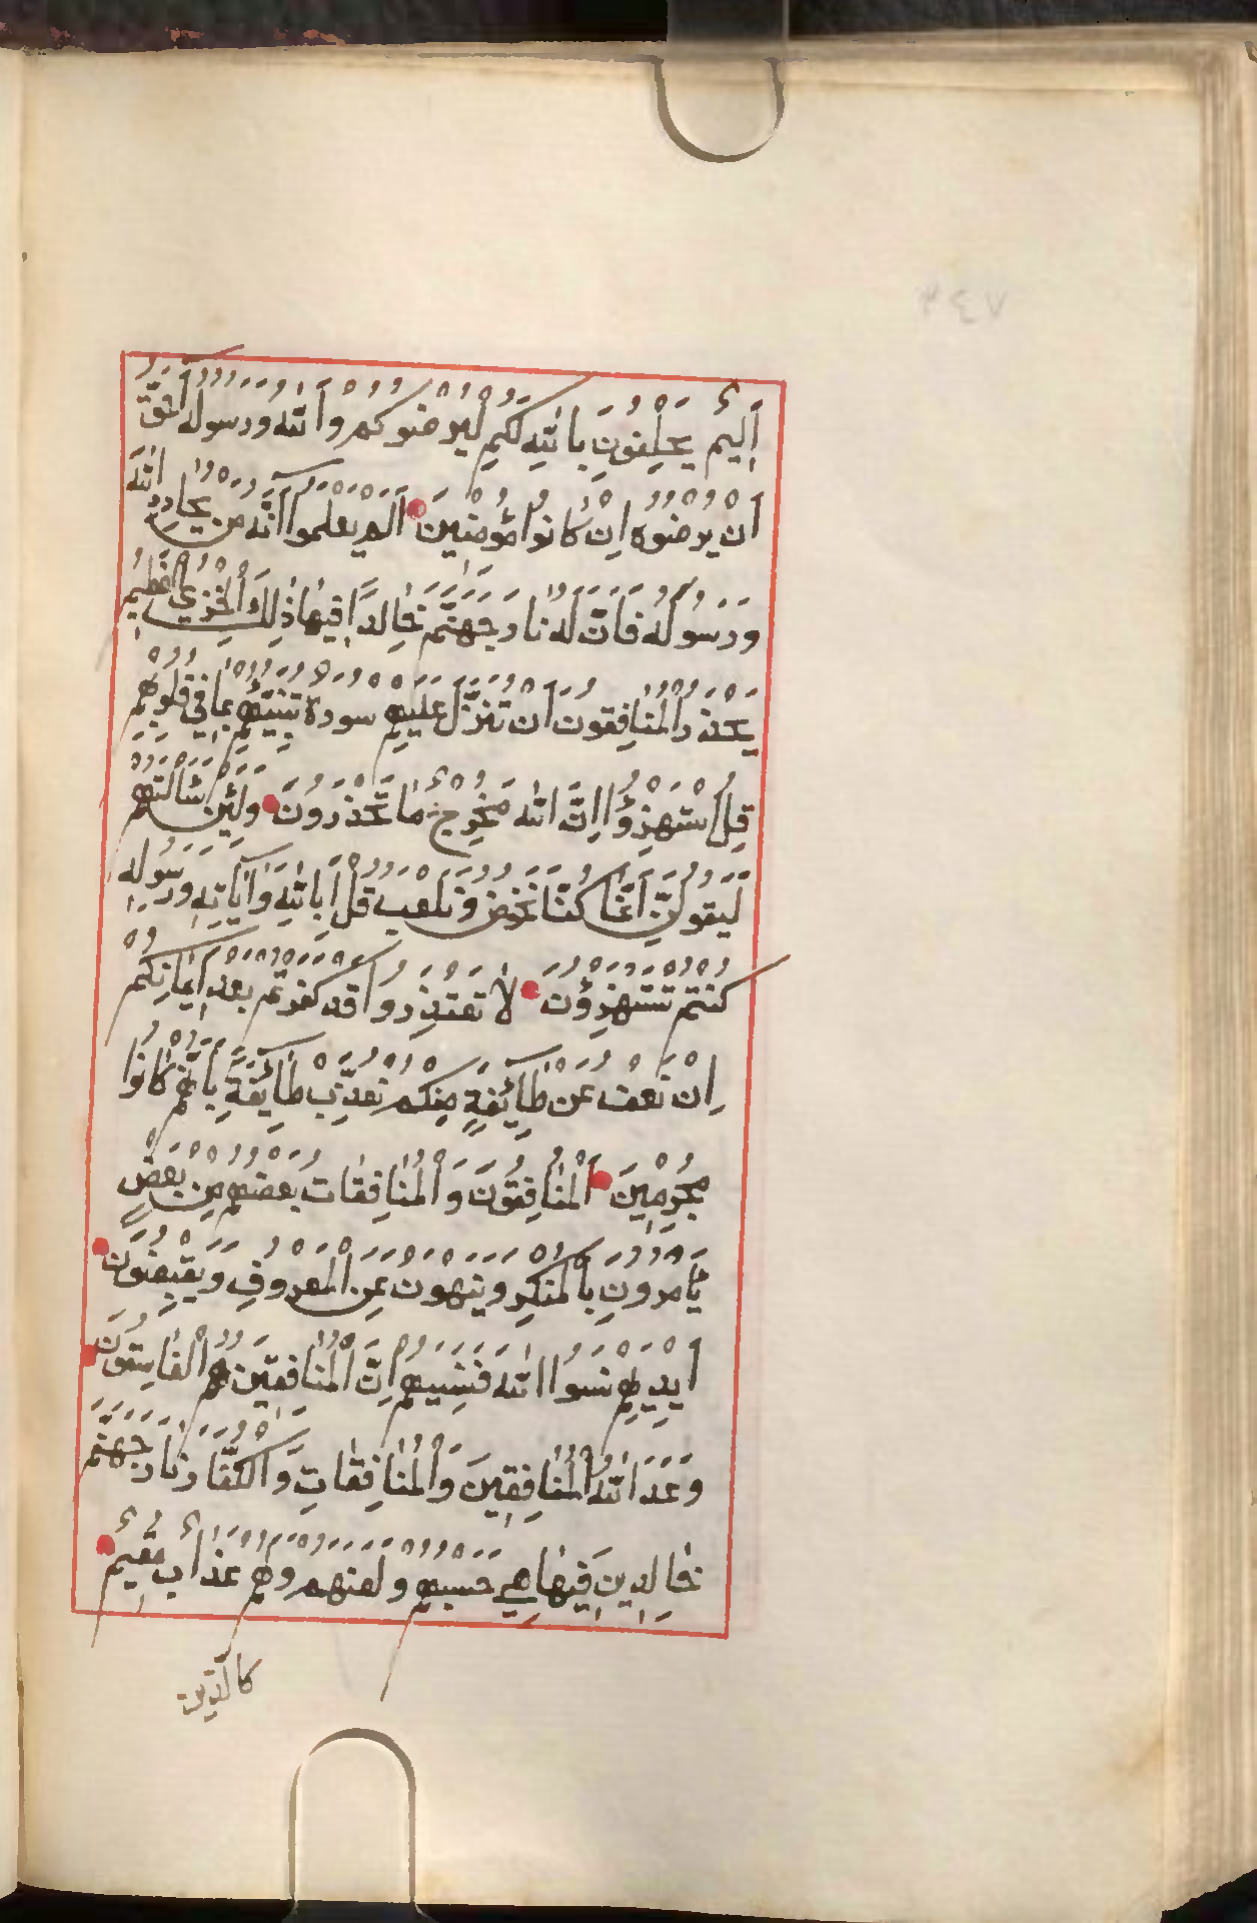 أَلِيمٌ يَحْلِفُونَ بِاللَّهِ لَكُمْ لِيُرْضُوكُمْ وَاللَّهُ وَرَسُولُهُ أَحَقُّ
أَنْ يُرْضُوهُ إِنْ كَانُوا مُؤْمِنِينَ أَلَمْ يَعْلَمُوا أَنَّهُ مَنْ يُحَادِدِ اللَّهَ
وَرَسُولَهُ فَأَنَّ لَهُ نَارَ جَهَنَّمَ خَالِدًا فِيهَا ذَلِكَ الْخِزْيُ الْعَظِيمُ
يَحْذَرُ الْمُنَافِقُونَ أَنْ تُنَزَّلَ عَلَيْهِمْ سُورَةٌ تُنَبِّئُهُمْ بِمَا فِي قُلُوبِهِمْ
قُلِ اسْتَهْزِؤُا إِنَّ اللَّهَ مُخْرِجٌ مَا تَحْذَرُونَ وَلَئِنْ سَأَلْتَهُمْ
لَيَقُولُنَّ إِنَّمَا كُنَّا نَخُوضُ وَنَلْعَبُ قُلْ أَبِاللَّهِ وَآيَاتِهِ وَرَسُولِهِ
كُنْتُمْ تَسْتَهْزِؤُنَ لَا تَعْتَذِرُوا قَدْ كَفَرْتُمْ بَعْدَ إِيمَانِكُمْ
إِنْ نَعْفُ عَنْ طَائِفَةٍ مِنْكُمْ نُعَذِّبْ طَائِفَةً بِأَنَّهُمْ كَانُوا
مُجْرِمِينَ الْمُنَافِقُونَ وَالْمُنَافِقَاتُ بَعْضُهُمْ مِنْ بَعْضٍ
يَأْمُرُونَ بِالْمُنْكَرِ وَيَنْهَوْنَ عَنِ الْمَعْرُوفِ وَيَقْبِضُونَ
أَيْدِيَهُمْ نَسُوا اللَّهَ فَنَسِيَهُمْ إِنَّ الْمُنَافِقِينَ هُمُ الْفَاسِقُونَ
وَعَدَ اللَّهُ الْمُنَافِقِينَ وَالْمُنَافِقَاتِ وَالْكُفَّارَ نَارَ جَهَنَّمَ
خَالِدِينَ فِيهَا هِيَ حَسْبُهُمْ وَلَعَنَهُمْ وَلَهُمْ عَذَابٌ مُقِيمٌ
كَالَّذِينَ